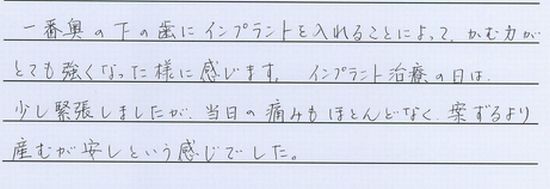 一番奥の下の歯にインプラントを入れることによって、かむ力が
とても強くなった様に感じます。 インプラント治療の日は、
少し緊張しましたが、当日の痛みもほとんどなく、案ずるより
産むが安しという感じでした。